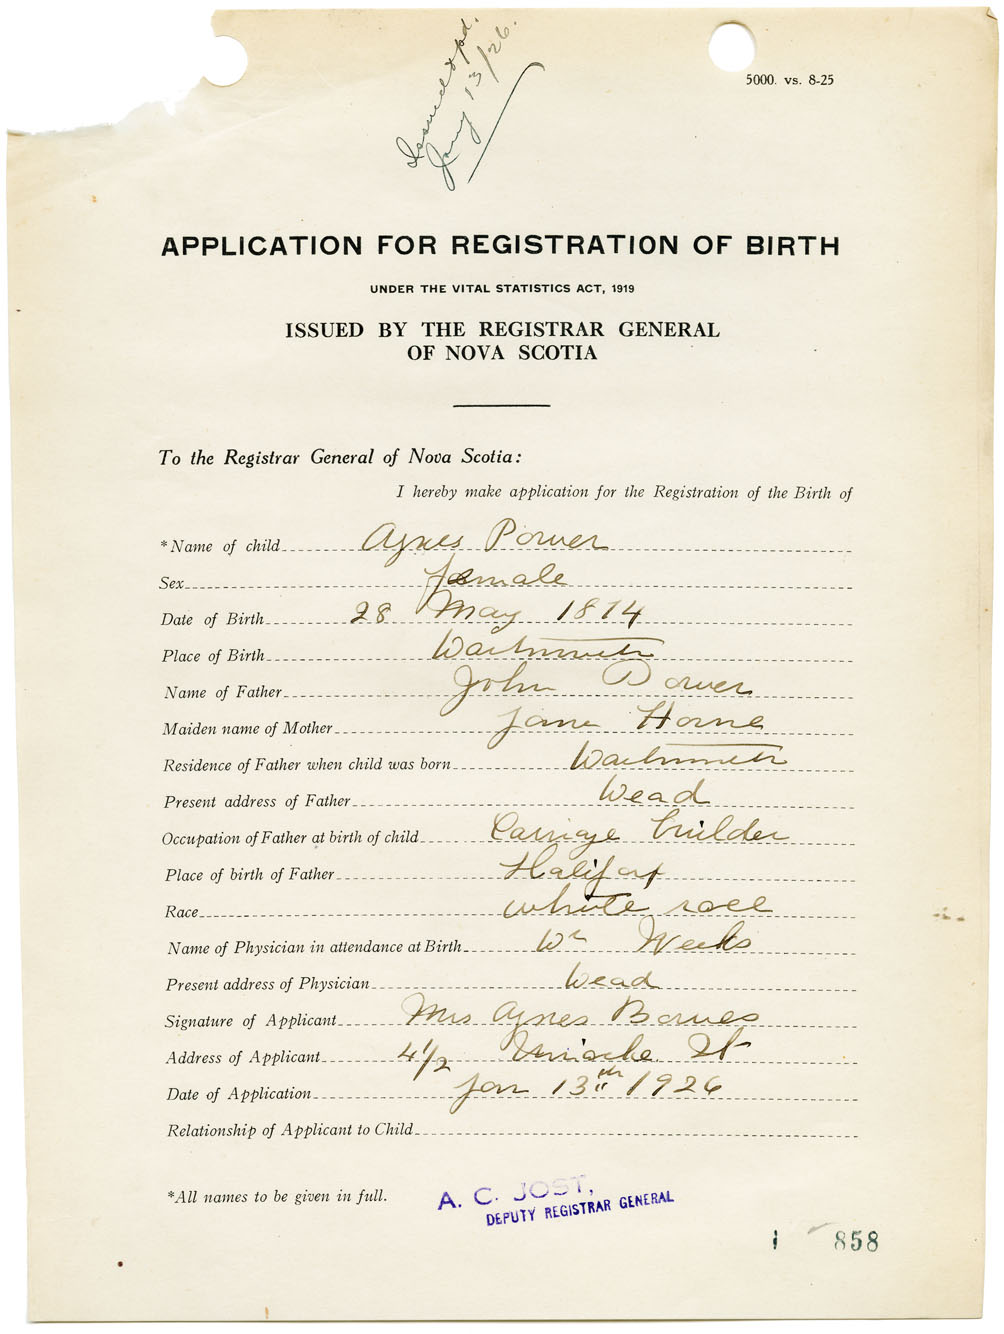 Issued & pd.
Jany 13/26.
5000. vs. 8-25
APPLICATION FOR REGISTRATION OF BIRTH
UNDER THE VITAL STATISTICS ACT, 1919
ISSUED BY THE REGISTRAR GENERAL
OF NOVA SCOTIA
To the Registrar General of Nova Scotia:
I hereby make application for the Registration of the Birth of
*Name of child Agnes Power
Sex female
Date of Birth 28 May 1874
Place of Birth Dartmouth
Name of Father John Power
Maiden name of Mother Jane Horne
Residence of Father when child was born Dartmouth
Present address of Father Dead
Occupation of Father at birth of child Carriage builder
Place of birth of Father Halifax
Race white race
Name of Physician in attendance at Birth Dr Weeks
Present address of Physician Dead
Signature of Applicant Mrs Agnes
Address of Applicant 4 1/2 Uniacke St
Date of Application Jan 13th 1926
Relationship of Applicant to Child
*All names to be given in full.
A. C. JOST,
DEPUTY REGISTRAR GENERAL
1 858